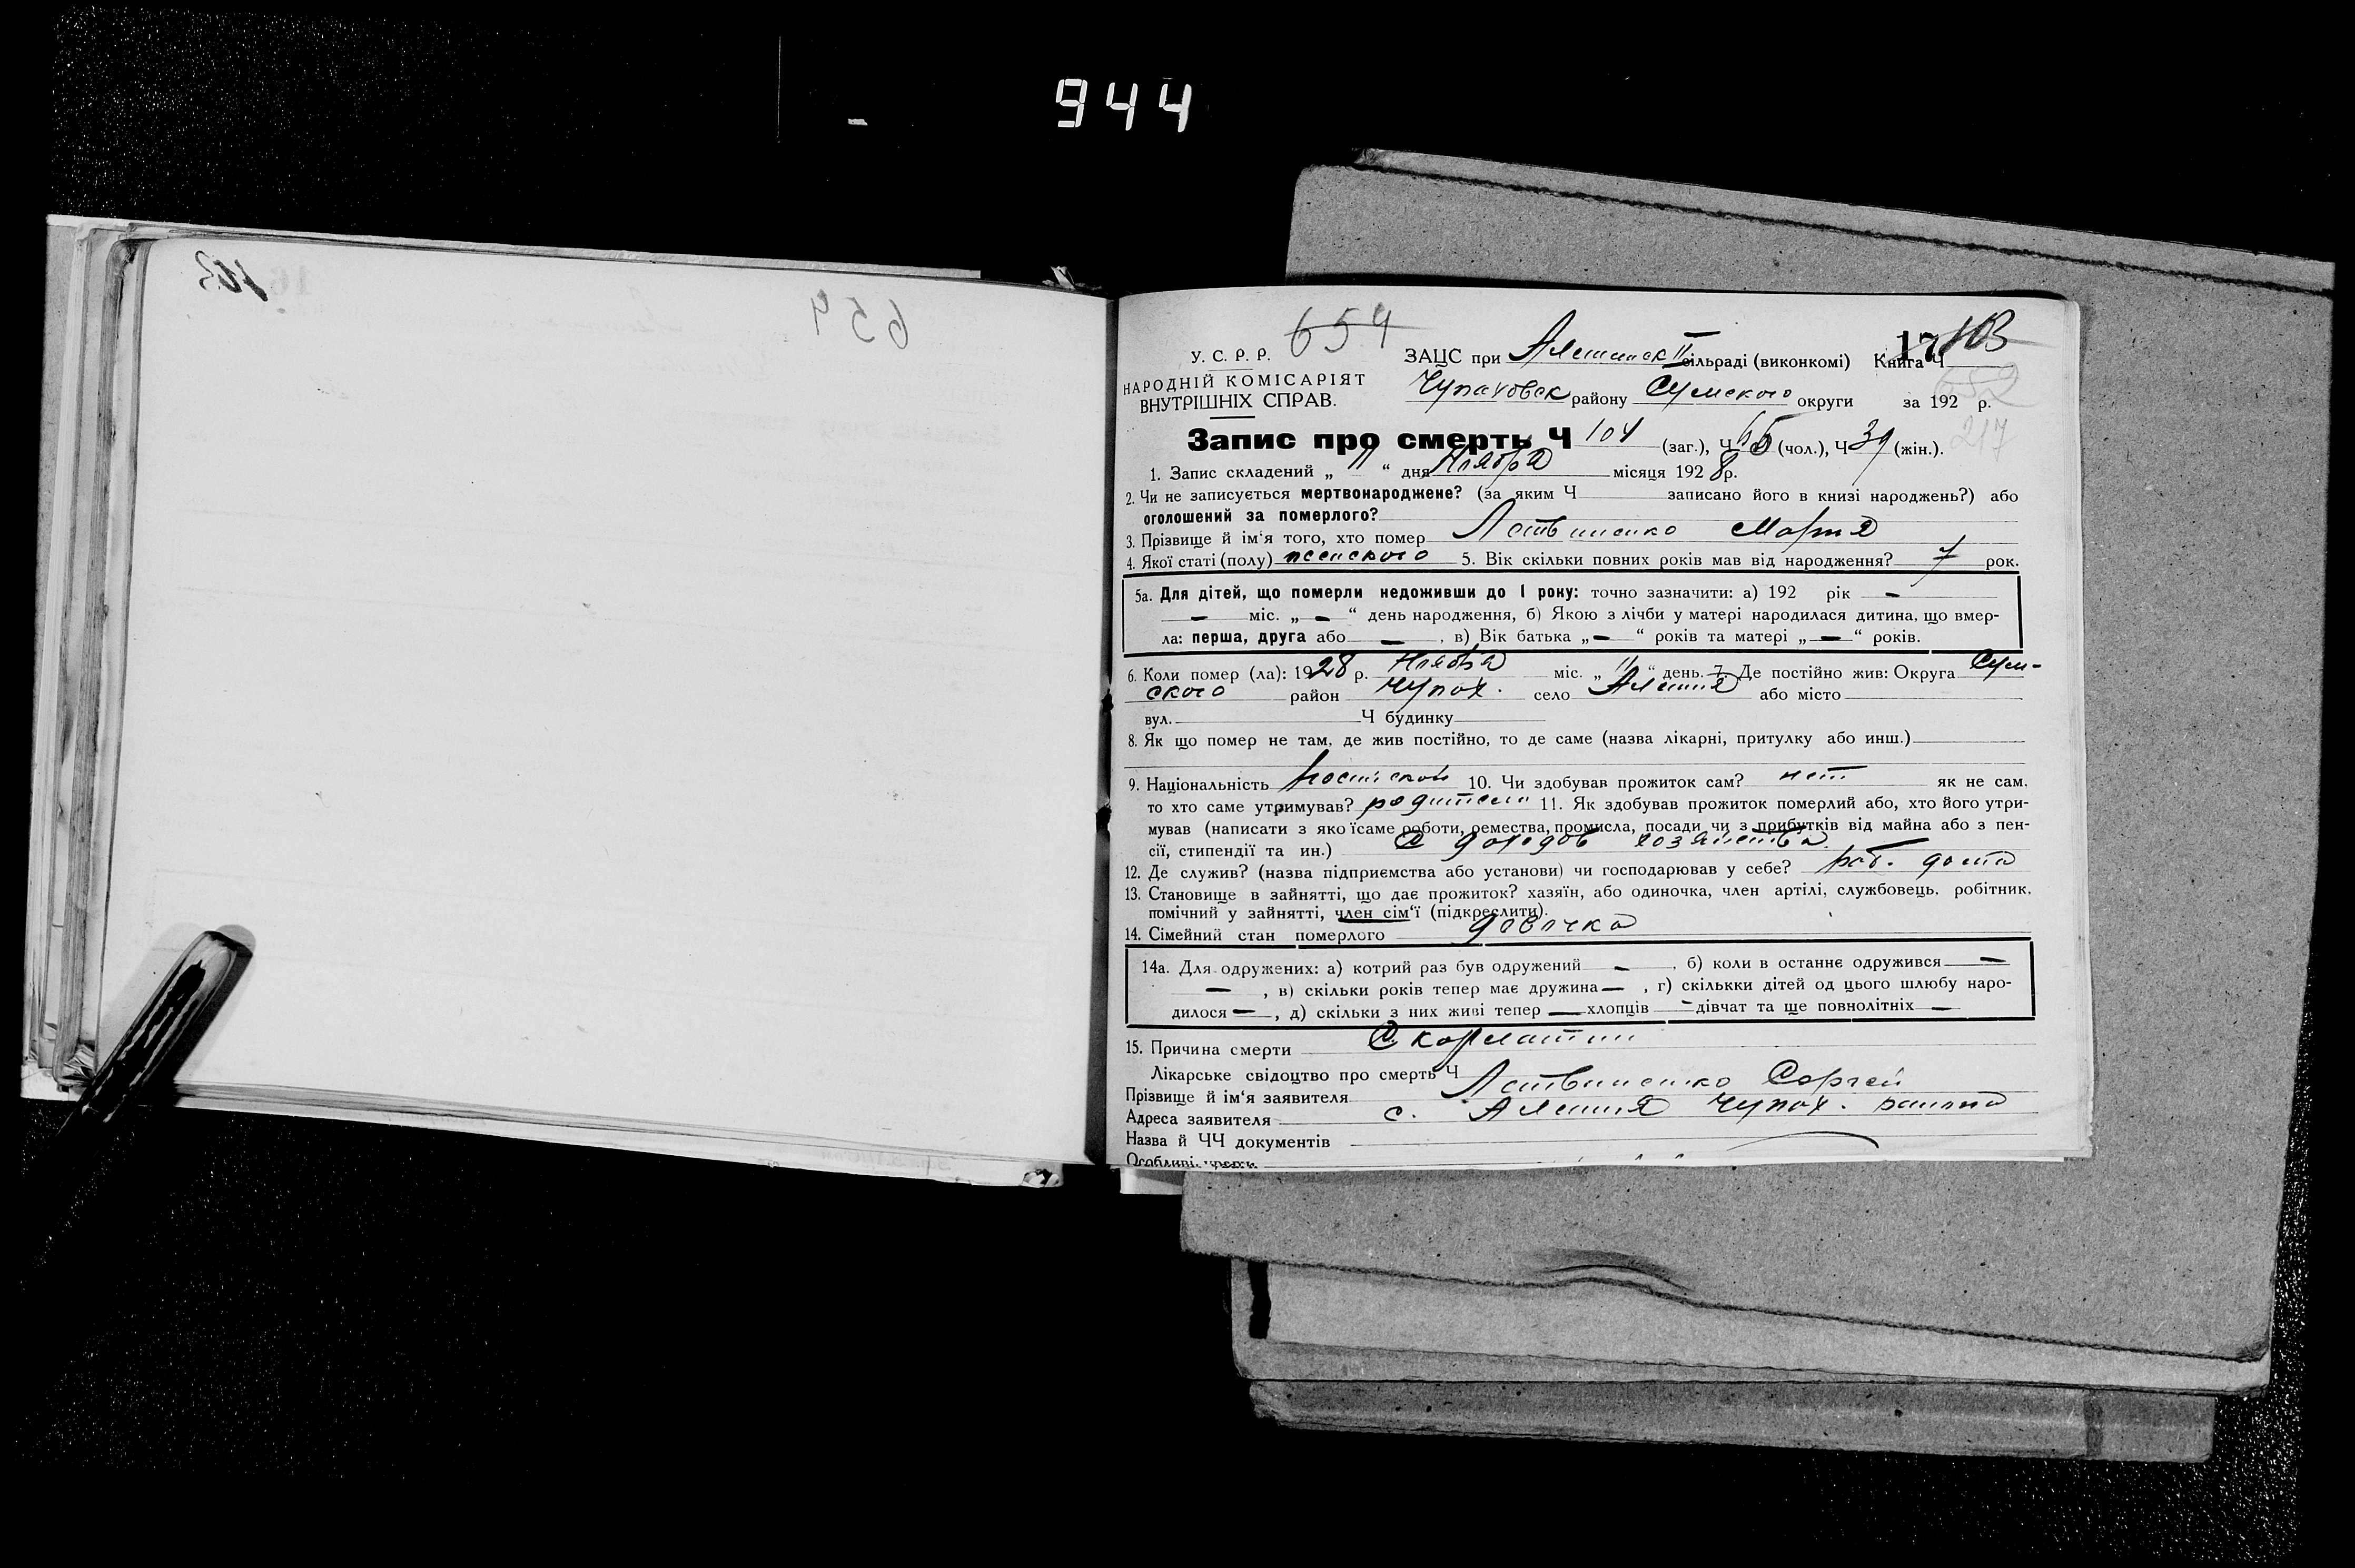 944
654
103
654
17 103
У. С. Р. Р. ЗАЦС при Алешинск II сільраді (виконкомі) Книга Ч
НАРОДНІЙ КОМІСАРІЯТ
ВНУТРІШНІХ СПРАВ.
Чупаховск району Сумского округи за 192 р.
217
Запис про смерть Ч 104 (заг.), Ч 65 (чол.), Ч 39 (жін.).
1. Запис складений „ 11 “ дня Ноября місяця 192 8 р.
2. Чи не записується мертвонароджене? (за яким Ч записано його в книзі народжень?) або
оголошений за померлого?
3. Прізвище й ім‘я того, хто помер Литвиненко Мария
4. Якої статі (полу) женского 5. Вік скільки повних років мав від народження? 7 рок.
5а. Для дітей, що померли недоживши до 1 року: точно зазначити: а) 192 рік —
— міс. „ — “ день народження, б) Якою з лічби у матері народилася дитина, що вмер-
ла: перша, друга або — , в) Вік батька „ — “ років та матері „ — “ років.
6. Коли помер (ла): 1928 р. Ноября міс. „ 11 “ день. 7. Де постійно жив: Округа Сум-
ского район Чупах. село Алешня або місто
вул. Ч будинку
8. Як що помер не там, де жив постійно, то де саме (назва лікарні, притулку або инш.)
9. Національність 10. Чи здобував прожиток сам? нет як не сам,
то хто саме утримував? родители 11. Як здобував прожиток померлий або, хто його утри-
мував (написати з якоїсаме роботи, ремества, промисла, посади чи з прибутків від майна або з пен-
сії, стипендії та ин.) С доходов хозяйства
12. Де служив? (назва підприємства або установи) чи господарював у себе? раб. дома
13. Становище в зайнятті, що дає прожиток? хазяїн, або одиночка, член артілі, службовець, робітник,
помічний у зайнятті, член сім‘ї (підкреслити).
14. Сімейний стан померлого девочка
14а. Для одружених: а) котрий раз був одружений — , б) коли в останнє одружився —
— , в) скільки років тепер має дружина — , г) скількки дітей од цього шлюбу наро-
дилося — , д) скільки з них живі тепер — хлопців — дівчат та ще повнолітніх —
15. Причина смерти Скорлатини
Лікарське свідоцтво про смерть Ч
Прізвище й ім‘я заявителя Литвиненко Сергей
Адреса заявителя с. Алешня Чупах. района
Назва й ЧЧ документів
Особливі уваги